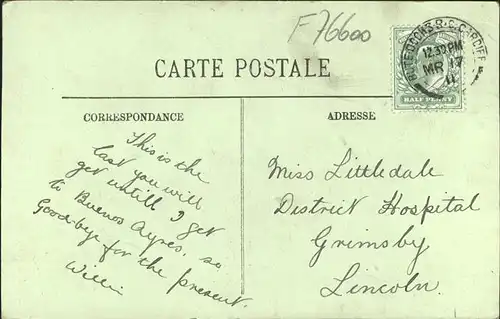 F 76600
BUTE-DOCKS B.O. CARDIFF
12.30 PM
MR 17
11
HALF PENNY
CARTE POSTALE
CORRESPONDANCE
ADRESSE
This is the
last you will
get untill I get
to Buenos Ayres. so
Good-bye for the present.
Willie
Miss Littledale
District Hospital
Grimsby
Lincoln.